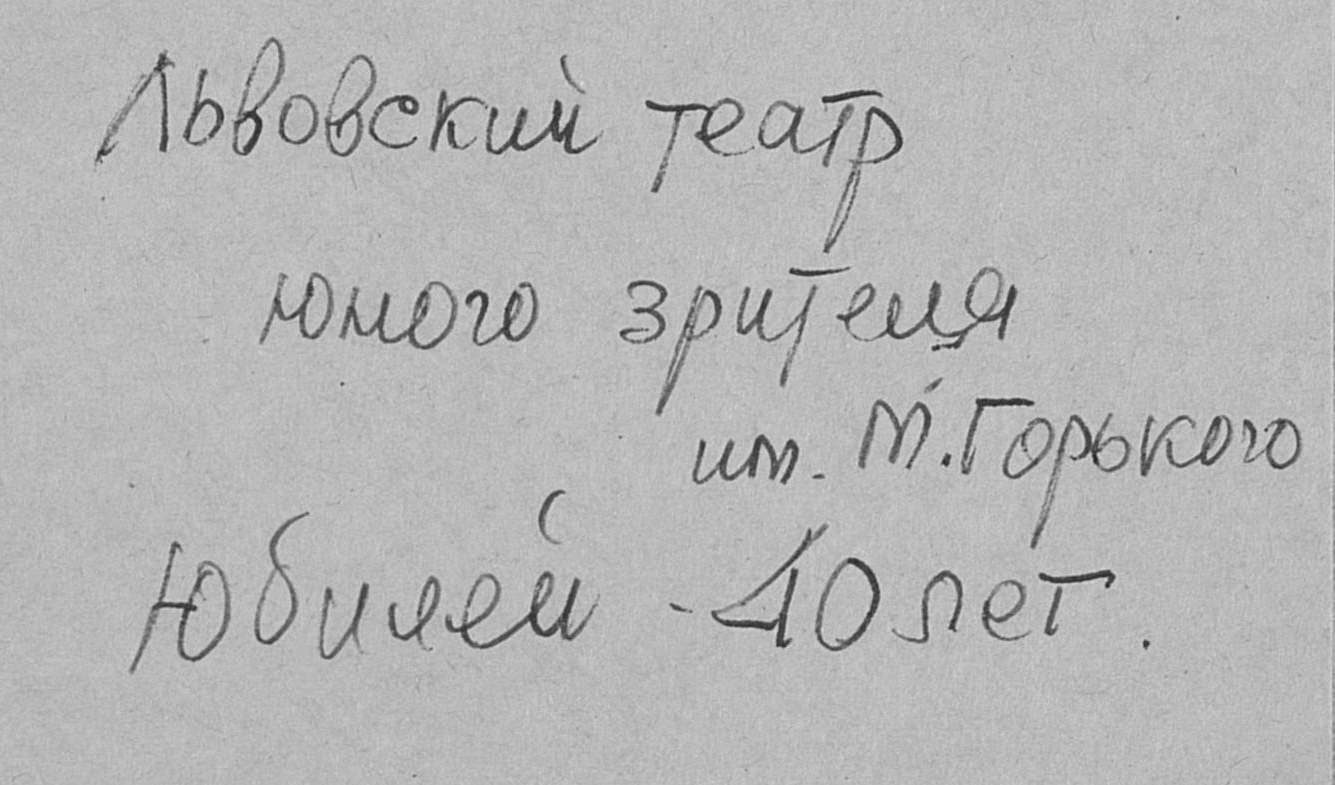 Львовский театр
юного зрителя
им. М.Горького
Юбилей - 40 лет.